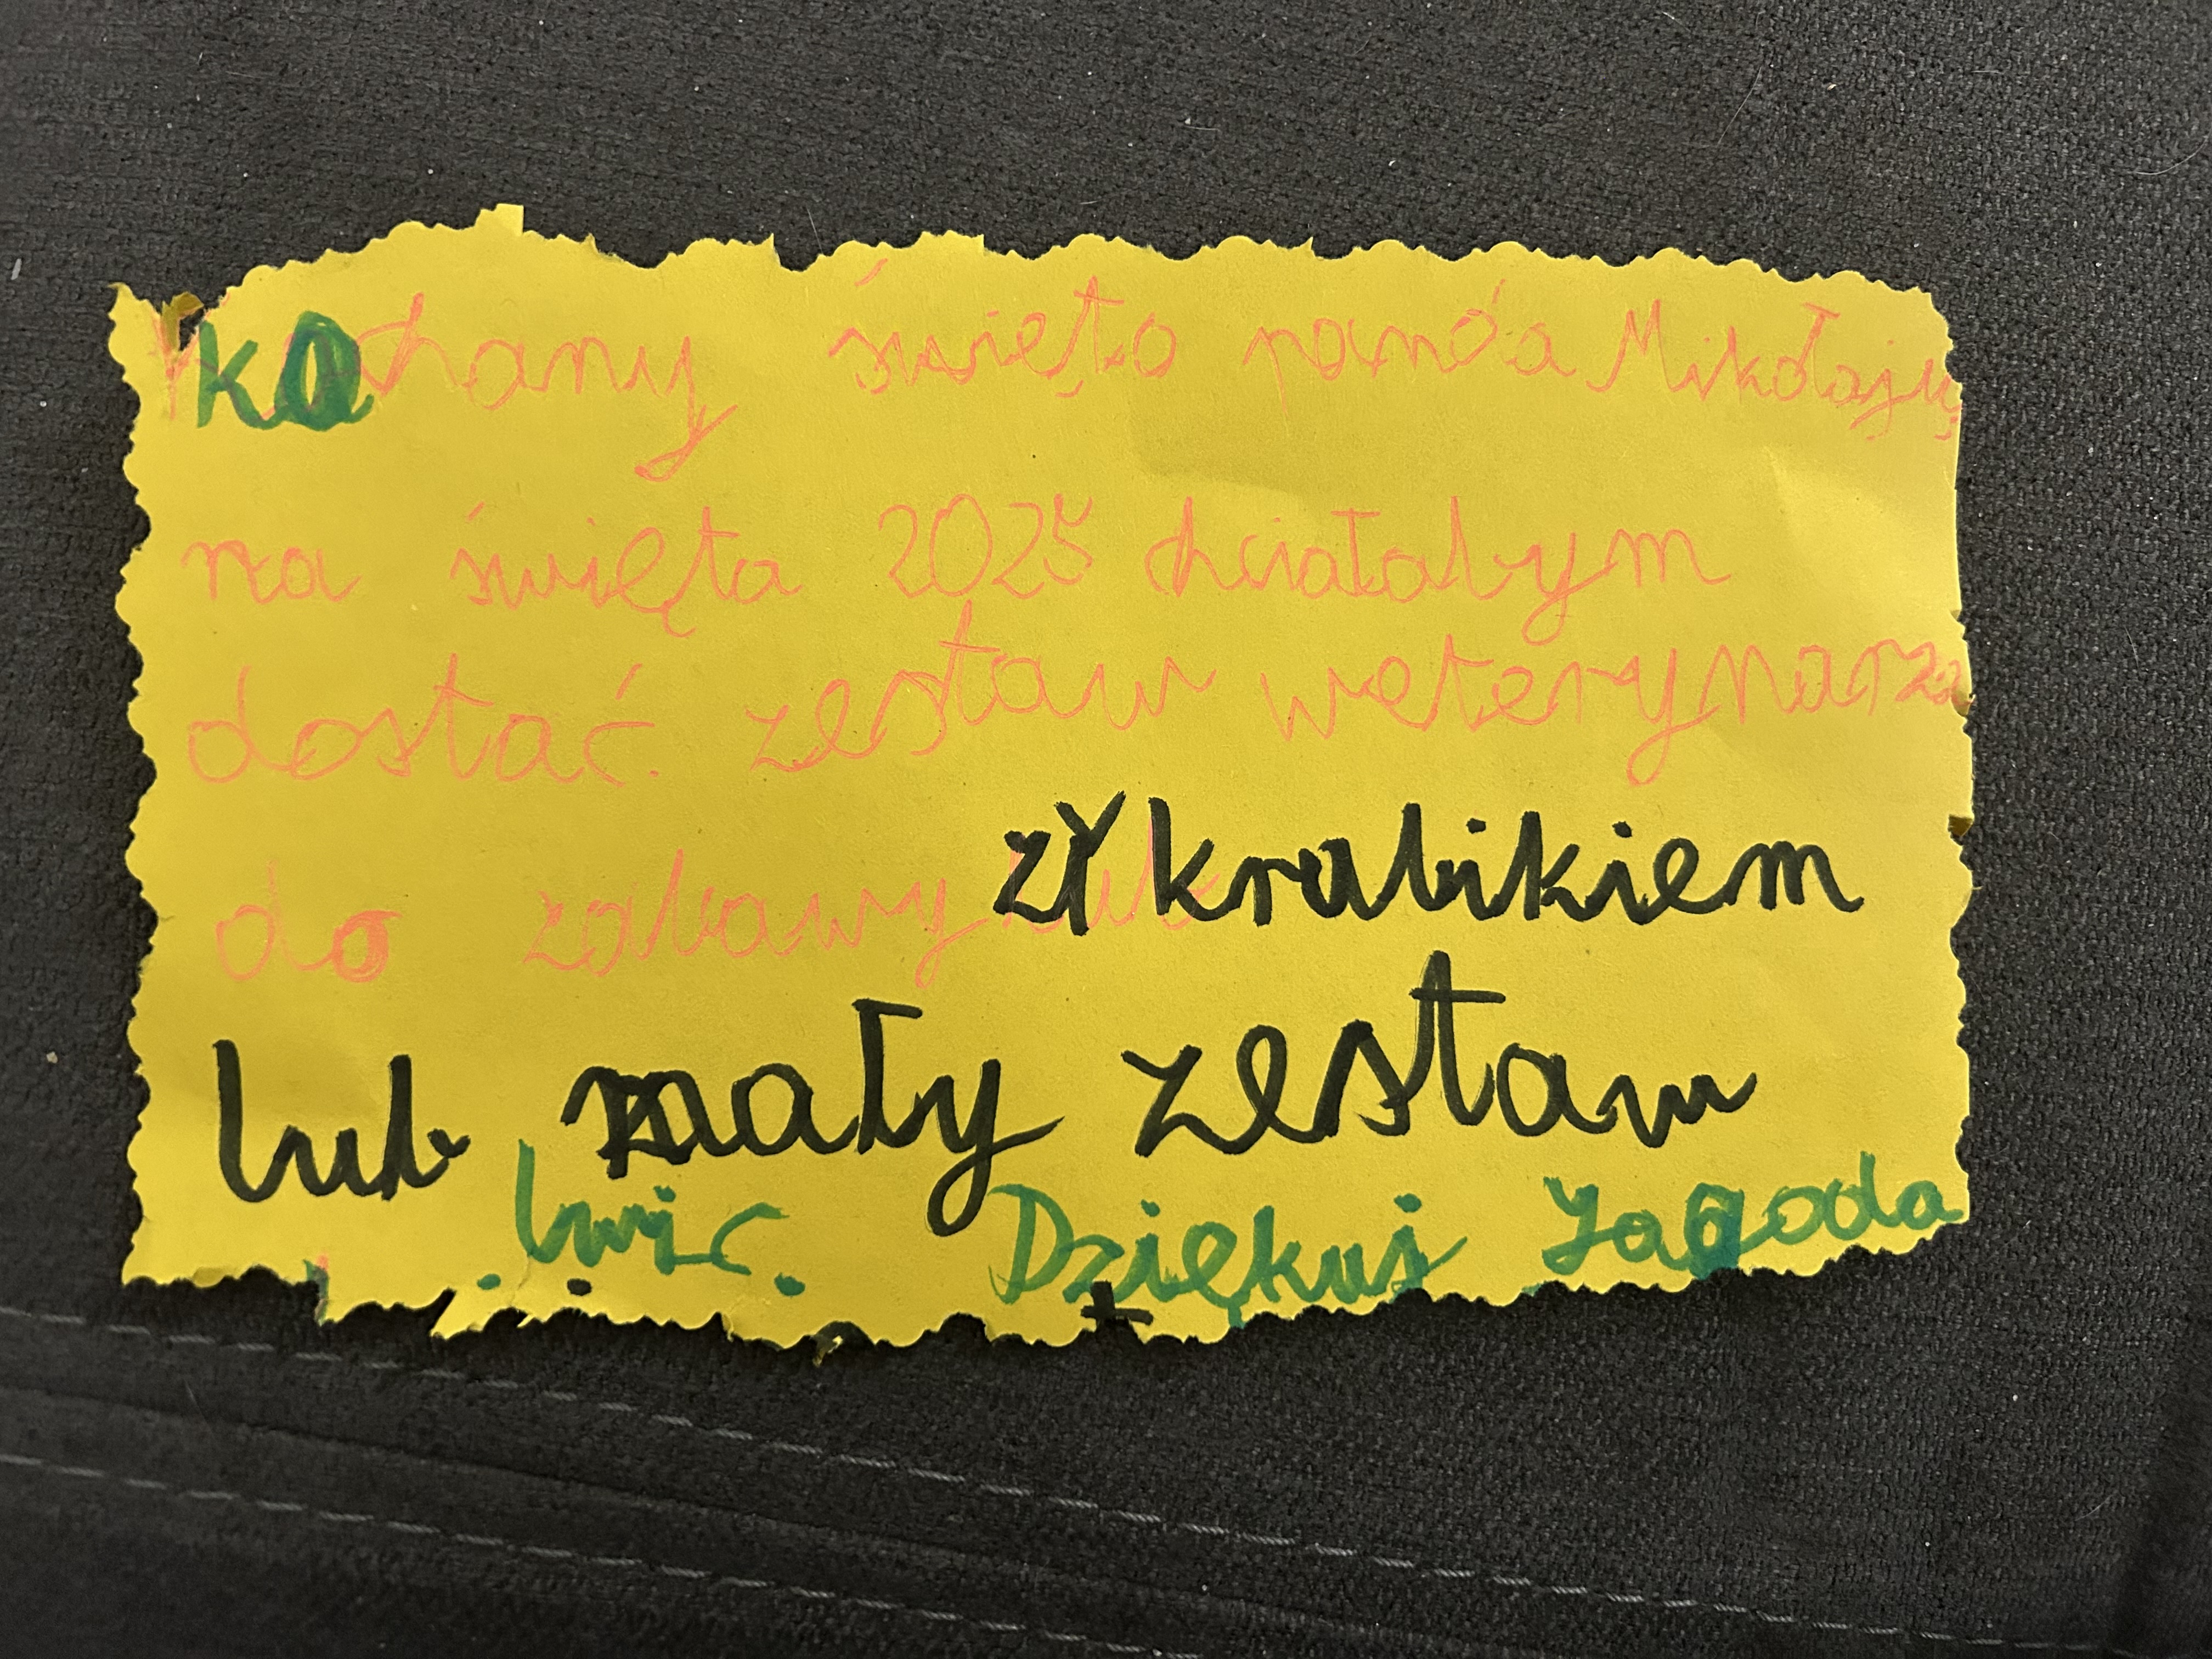 kochany święto panóa Mikołaju
na święta 2025 chciałabym
dostać. zestaw weterynarza
do zabawy z krabikiem
lub mały zestaw
Dziękuj Jagoda